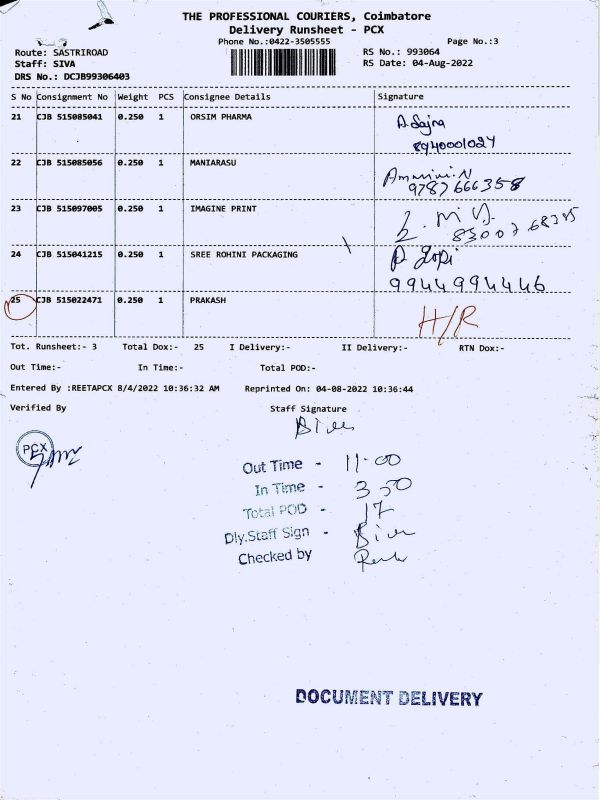 THE PROFESSIONAL COURIERS, Coimbatore
Delivery Runsheet - PCX
Phone No.:0422-3505555 Page No.:3
Route: SASTRIROAD RS No.: 993064
Staff: SIVA RS Date: 04-Aug-2022
DRS No.: DCJB99306403
S No Consignment No Weight PCS Consignee Details Signature
21 CJB 515085041 0.250 1 ORSIM PHARMA
8940001024
22 CJB 515085056 0.250 1 MANIARASU
9787666358
23 CJB 515097005 0.250 1 IMAGINE PRINT
24 CJB 515041215 0.250 1 SREE ROHINI PACKAGING P Gopi
9944994446
25 CJB 515022471 0.250 1 PRAKASH H/R
Tot. Runsheet:- 3 Total Dox:- 25 I Delivery:- II Delivery:- RTN Dox:-
Out Time:- In Time:- Total POD:-
Entered By :REETAPCX 8/4/2022 10:36:32 AM Reprinted On: 04-08-2022 10:36:44
Verified By Staff Signature
PCX
Out Time - 11:00
In Time - 3 50
Total POD - 17
Dly.Staff Sign -
Checked by
DOCUMENT DELIVERY